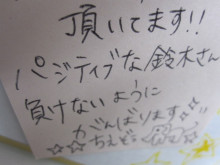 頂いてます!!
パジティブな鈴木さん
負けないように
がんばります☆彡
☆☆ちえぞー